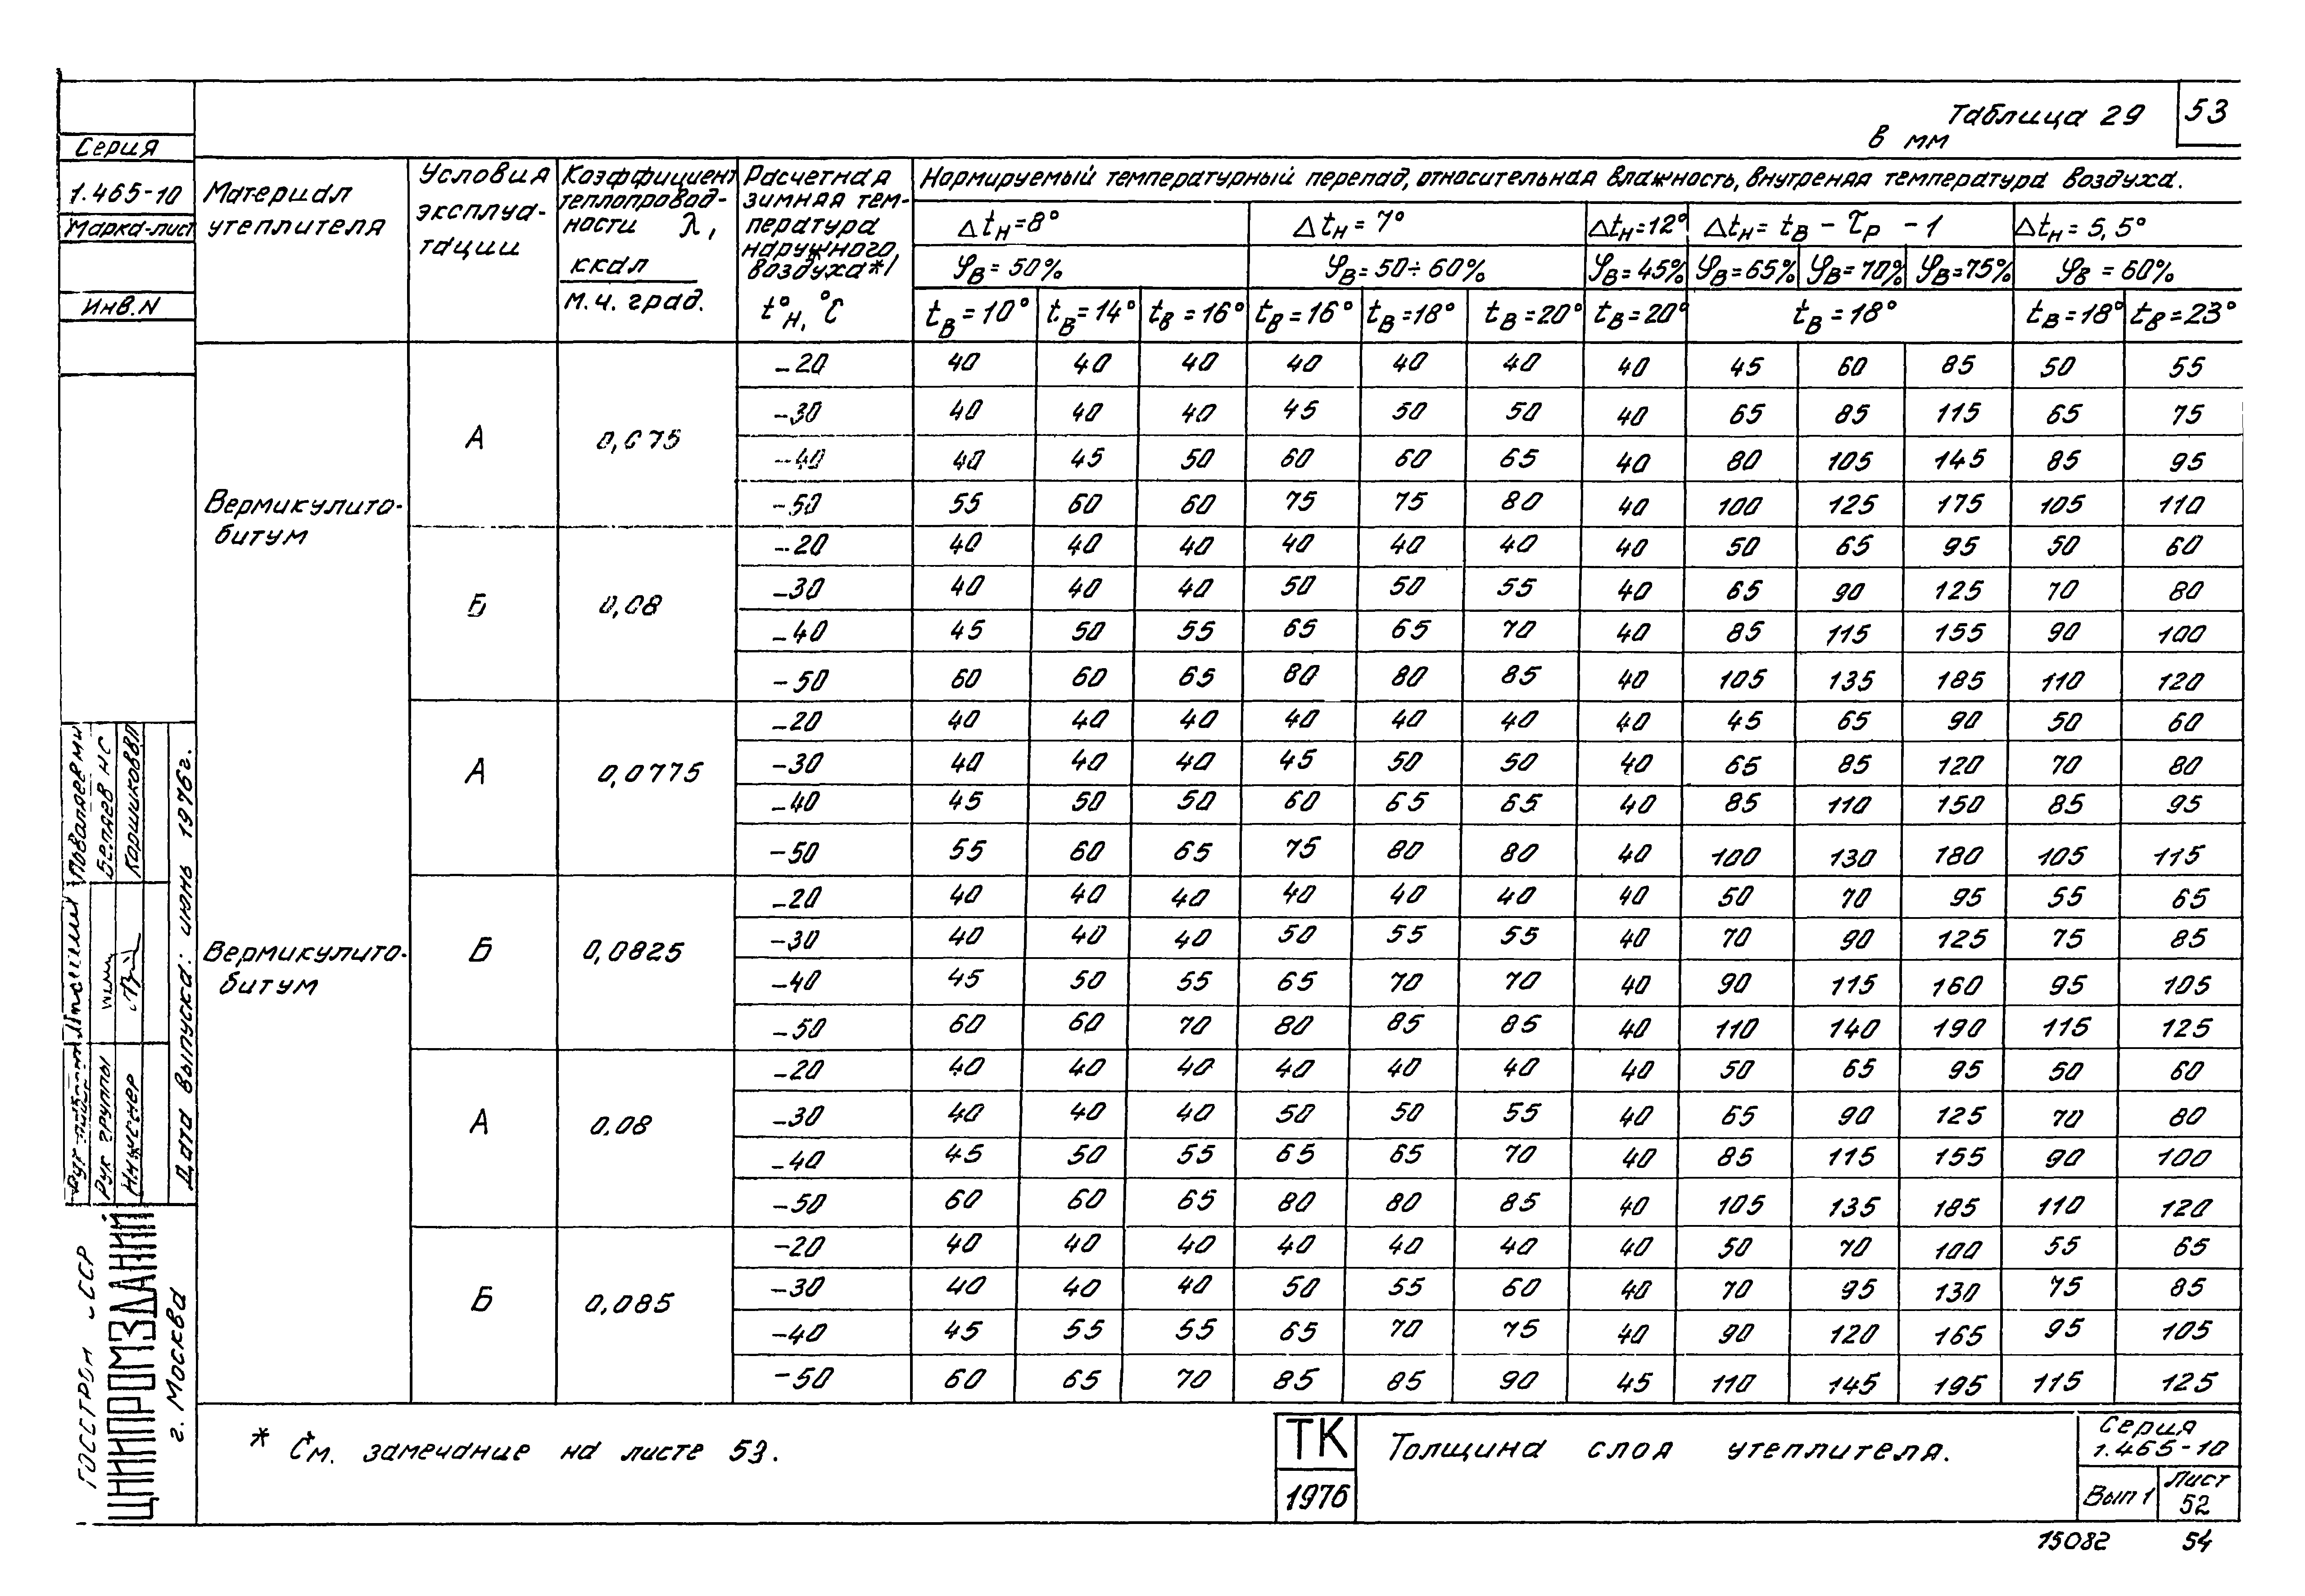 Таблица 29
53
в мм
Серия
1.465-10
Марка-лист
Инв. N
Материал утеплителя
Условия эксплуа-тации
Коэффициент теплопровод-ности λ, ккал / м.ч. град.
Расчетная зимняя тем-пература наружного воздуха*/ t°н, °C
Нормируемый температурный перепад, относительная влажность, внутреняя температура воздуха.
Δtн=8° Δtн=7° Δtн=12° Δtн= tв - τр - 1 Δtн= 5,5°
φв=50% φв=50÷60% φв=45% φв=65% φв=70% φв=75% φв=60%
tв=10° tв=14° tв=16° tв=16° tв=18° tв=20° tв=20° tв=18° tв=18° tв=23°
Вермикулито-битум
А 0,075
-20 40 40 40 40 40 40 40 45 60 85 50 55
-30 40 40 40 45 50 50 40 65 85 115 65 75
-40 40 45 50 60 60 65 40 80 105 145 85 95
-50 55 60 60 75 75 80 40 100 125 175 105 110
Б 0,08
-20 40 40 40 40 40 40 40 50 65 95 50 60
-30 40 40 40 50 50 55 40 65 90 125 70 80
-40 45 50 55 65 65 70 40 85 115 155 90 100
-50 60 60 65 80 80 85 40 105 135 185 110 120
А 0,0775
-20 40 40 40 40 40 40 40 45 65 90 50 60
-30 40 40 40 45 50 50 40 65 85 120 70 80
-40 45 50 50 60 65 65 40 85 110 150 85 95
-50 55 60 65 75 80 80 40 100 130 180 105 115
Вермикулито-битум
Б 0,0825
-20 40 40 40 40 40 40 40 50 70 95 55 65
-30 40 40 40 50 55 55 40 70 90 125 75 85
-40 45 50 55 65 70 70 40 90 115 160 95 105
-50 60 60 70 80 85 85 40 110 140 190 115 125
А 0.08
-20 40 40 40 40 40 40 40 50 65 95 50 60
-30 40 40 40 50 50 55 40 65 90 125 70 80
-40 45 50 55 65 65 70 40 85 115 155 90 100
-50 60 60 65 80 80 85 40 105 135 185 110 120
Б 0,085
-20 40 40 40 40 40 40 40 50 70 100 55 65
-30 40 40 40 50 55 60 40 70 95 130 75 85
-40 45 55 55 65 70 75 40 90 120 165 95 105
-50 60 65 70 85 85 90 45 110 145 195 115 125
* См. замечание на листе 53.
ТК
1976
Толщина слоя утеплителя.
Серия
1.465-10
Вып 1
Лист
52
15082 54
Рук. группы Беляев Н С
Инженер
Дата выпуска: июнь 1976г.
ГОССТРОЙ СССР
ЦНИИПРОМЗДАНИЙ
г. Москва